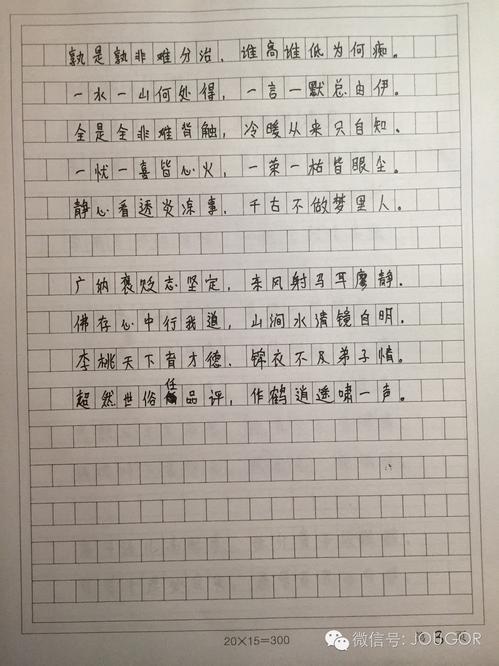 孰是孰非难分治，谁高谁低为何痴。
一水一山何处得，一言一默总由伊。
全是全非难背触，冷暖从来只自知。
一忧一喜皆心火，一荣一枯皆眼尘。
静心看透炎凉事，千古不做梦里人。
广纳褒贬志坚定，东风射马耳廖静。
佛存心中行我道，山涧水清镜自明。
李桃天下育才德，锦衣不及弟子情。
超然世俗任品评，作鹤逍遥啸一声。
20×15=300
3
微信号: JOBGOR